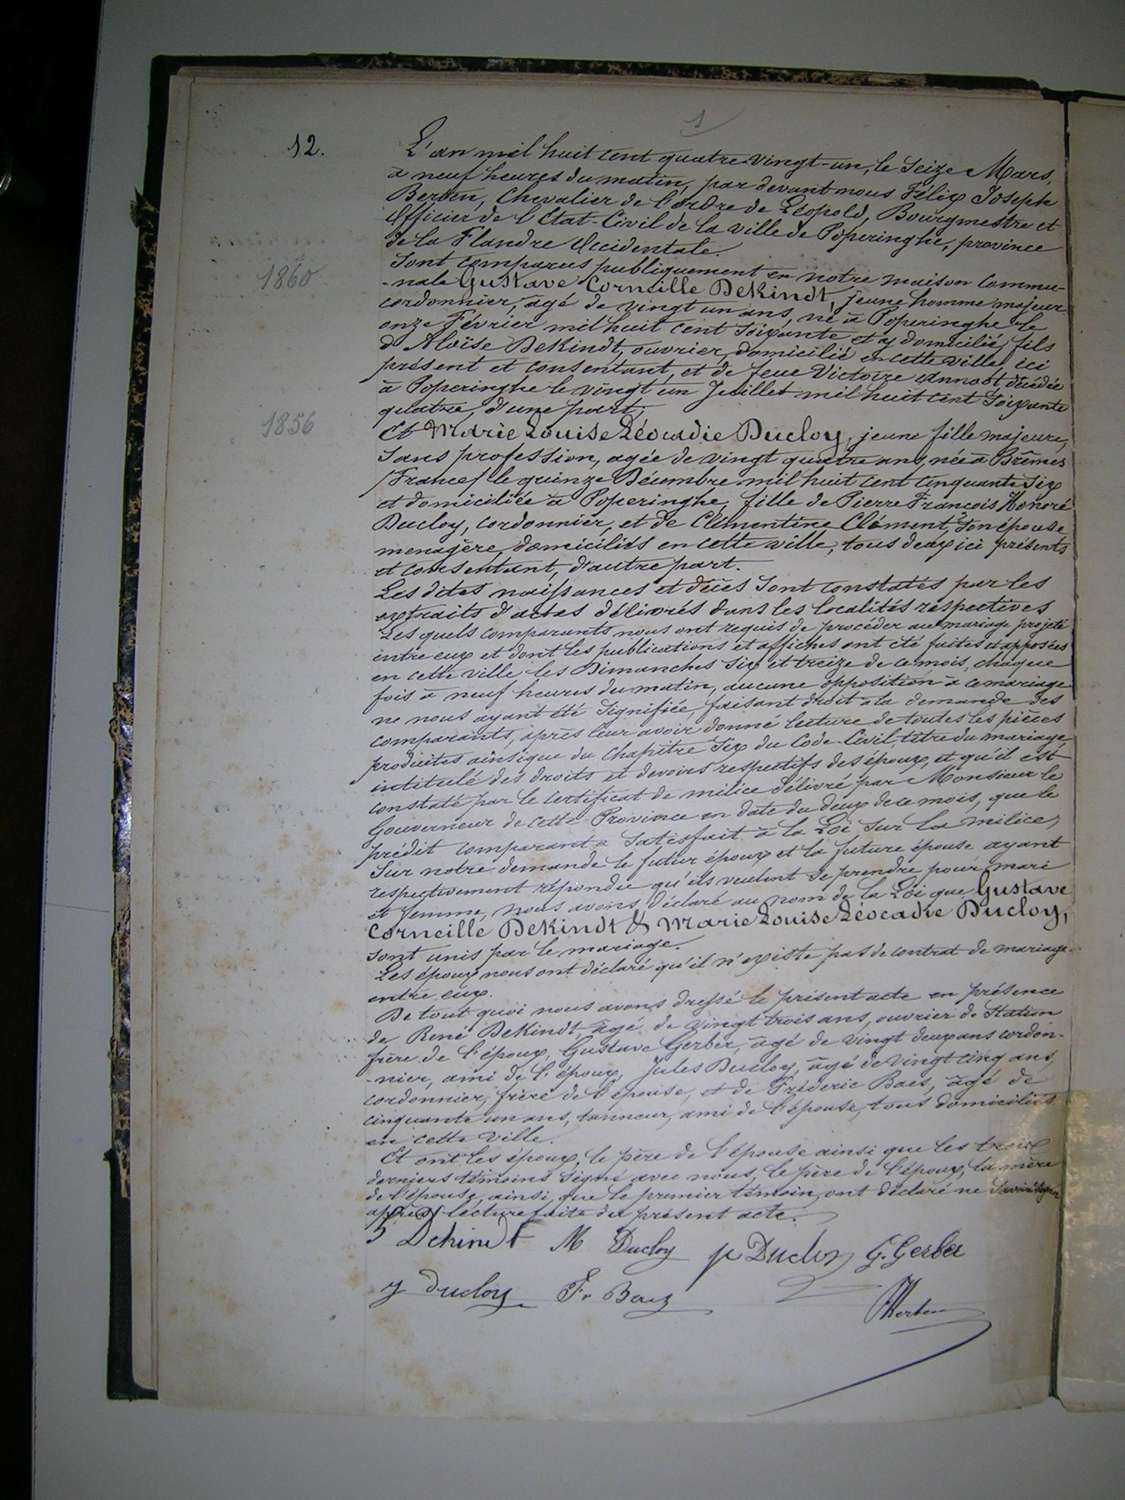 1
12.
L'an mil huit cent quatre-vingt-un, le Seize Mars,
à neuf heures du matin, par devant nous Félix Joseph
Berten, Chevalier de l'Ordre de Léopold, Bourgmestre et
Officier de l'Etat-Civil de la ville de Poperinghe, province
de la Flandre Occidentale.
Sont comparus publiquement en notre maison Commu-
1860
-nale Gustave Corneille DeKindt, jeune homme majeur
cordonnier, agé de vingt un ans, né à Poperinghe le
onze Février mil huit cent Soixante et y domicilié, fils
d'Aloïse DeKindt, ouvrier, domicilié en cette ville, ici
présent et consentant, et de feue Victoire Annoot, décédée
à Poperinghe le vingt un Juillet mil huit cent Soixante
quatre, d'une part,
1856
Et Marie Louise Léocadie Ducloy, jeune fille majeure,
Sans profession, agée de vingt quatre ans, née à Brêmes
(France) le quinze Décembre mil huit cent cinquante Six
et domiciliée à Poperinghe, fille de Pierre François Honoré
Ducloy, cordonnier, et de Clémentine Clément, Son épouse
menagère, domiciliés en cette ville, tous deux ici présents
et consentant, d'autre part.
Les dites naissances et décès Sont constatés par les
extraits d'actes délivrés dans les localités respectives
Les quels comparants nous ont requis de procéder au mariage projeté
entre eux et dont les publications et affiches ont été faites et apposées
en cette ville les Dimanches Six et treize de ce mois, chaque
fois à neuf heures du matin, aucune opposition à ce mariage
ne nous ayant été Signifiée, faisant droit à la demande des
comparants, après leur avoir donné lecture de toutes les pièces
produites ainsi que du chapitre Six du Code-Civil, titre du mariage
intitulé des droits et devoirs respectifs des époux, et qu'il est
constaté par le certificat de milice délivré par Monsieur le
Gouverneur de cette Province en date du deux de ce mois, que le
prédit comparant a Satisfait à la Loi Sur la milice,
Sur notre demande le futur époux et la future épouse ayant
respectivement répondu qu'ils veulent Se prendre pour mari
et femme, nous avons déclaré au nom de la Loi que Gustave
Corneille DeKindt & Marie Louise Léocadie Ducloy,
Sont unis par le mariage.
Les époux nous ont déclaré qu'il n'existe pas de contrat de mariage
entre eux.
De tout quoi nous avons dressé le présent acte en présence
de René DeKindt, agé de vingt trois ans, ouvrier de Station
frère de l'époux, Gustave Gerber, âgé de vingt deux ans cordon-
-nier, ami de l'époux, Jules Ducloy, âgé de vingt cinq ans,
cordonnier, frère de l'épouse, et de Fréderic Baes, âgé de
cinquante un ans, tanneur, ami de l'épouse, tous domiciliés
en cette ville.
Et ont les époux, le père de l'épouse ainsi que les trois
derniers témoins Signé avec nous, le père de l'époux, la mère
de l'épouse, ainsi que le premier témoin, ont déclaré ne Savoir Signer
après lecture faite du présent acte.
Dekindt M Ducloy p Ducloy G. Gerber
J Ducloy F. Baes
Berten